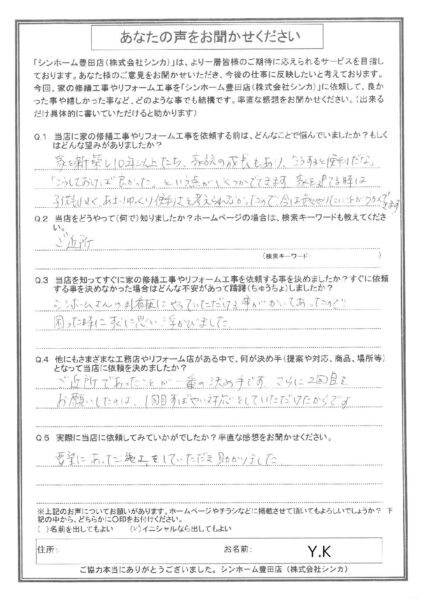 あなたの声をお聞かせください
「シンホーム豊田店(株式会社シンカ)」は、より一層皆様のご期待に応えられるサービスを目指し
ております。あなた様のご意見をお聞かせいただき、今後の仕事に反映したいと考えております。
今回、家の修繕工事やリフォーム工事を「シンホーム豊田店(株式会社シンカ)」に依頼して、良かっ
た事や嬉しかった事など、どのような事でも結構です。率直な感想をお聞かせください。(出来るだ
け具体的に書いていただけると助かります)
Q.1 当店に家の修繕工事やリフォーム工事を依頼する前は、どんなことで悩んでいましたか?もしく
はどんな望みがありましたか?
家を新築し10年以上たち、家族の成長もあり、「こうすると便利だな」
「こうしておけば良かった」という点がいくつかでてきます。家を建てる時は
子供も小さく、あまりゆっくり
Q.2 当店をどうやって(何で)知りましたか?ホームページの場合は、検索キーワードも教えてくださ
い。
ご近所
(検索キーワード: )
Q.3 当店を知ってすぐに家の修繕工事やリフォーム工事を依頼する事を決めましたか?すぐに依頼
する事を決めなかった場合はどんな不安があって躊躇(ちゅうちょ)しましたか?
シンホームさんの看板にやっていただける事がかいてあったので
困った時にすぐに思い浮かびました
Q.4 他にもさまざまな工務店やリフォーム店がある中で、何が決め手(提案や対応、商品、場所等)
となって当店に依頼を決めましたか?
ご近所であったことが一番の決め手です。さらに2回目を
お願いしたのは、1回目すばやい対応をしていただけたからです
Q.5 実際に当店に依頼してみていかがでしたか?率直な感想をお聞かせください。
要望にあった施工をしていただき助かりました。
※上記のお声についてお願いがあります。ホームページやチラシなどに掲載させて頂いてもよろしいでしょうか? 下
記の中から、どちらかに〇印をお付けください。
( )名前を出してもよい (✓)イニシャルなら出してもよい
住所: お名前: Y.K
ご協力本当にありがとうございました。シンホーム豊田店(株式会社シンカ)